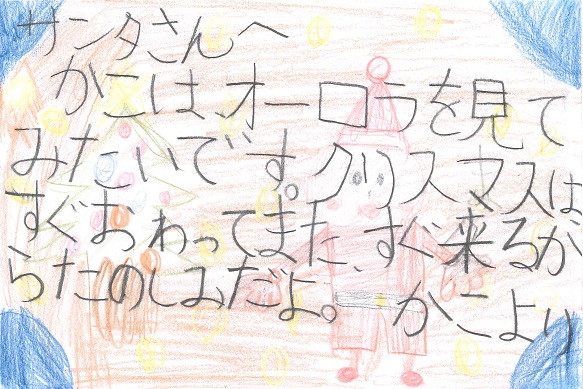 サンタさんへ
かこは、オーロラを見て
みたいです。クリスマスは
すぐおわってまた、すぐ来るか
らたのしみだよ。かこより